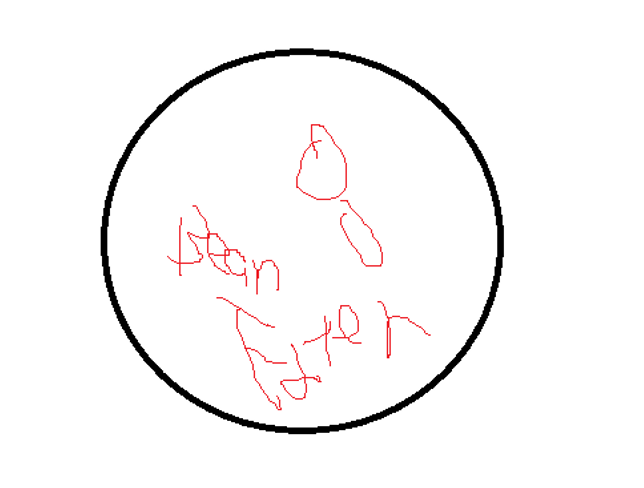 bean
Eater